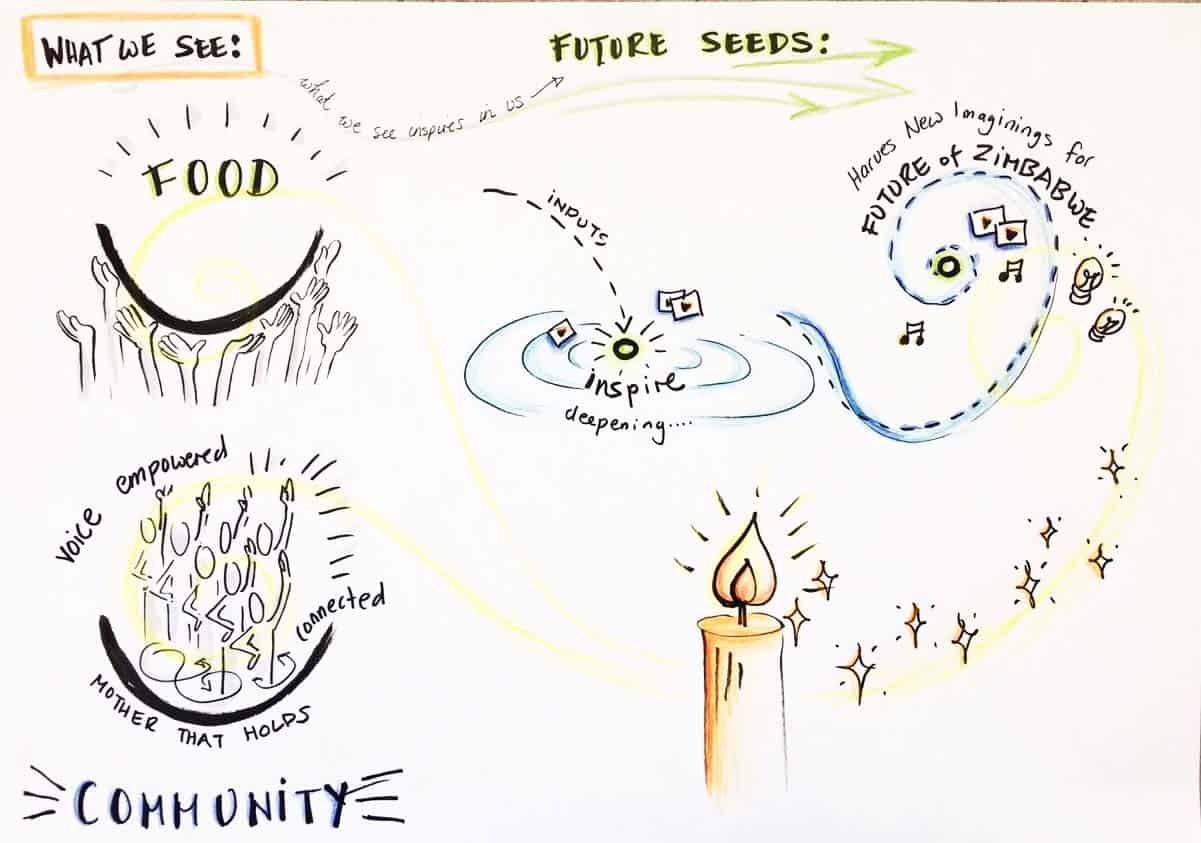 WHAT WE SEE:
what we see inspires in us
FUTURE SEEDS:
FOOD
INPUTS
Harves New Imaginings for
FUTURE of ZIMBABWE
inspire
deepening....
voice empowered
connected
MOTHER THAT HOLDS
COMMUNITY